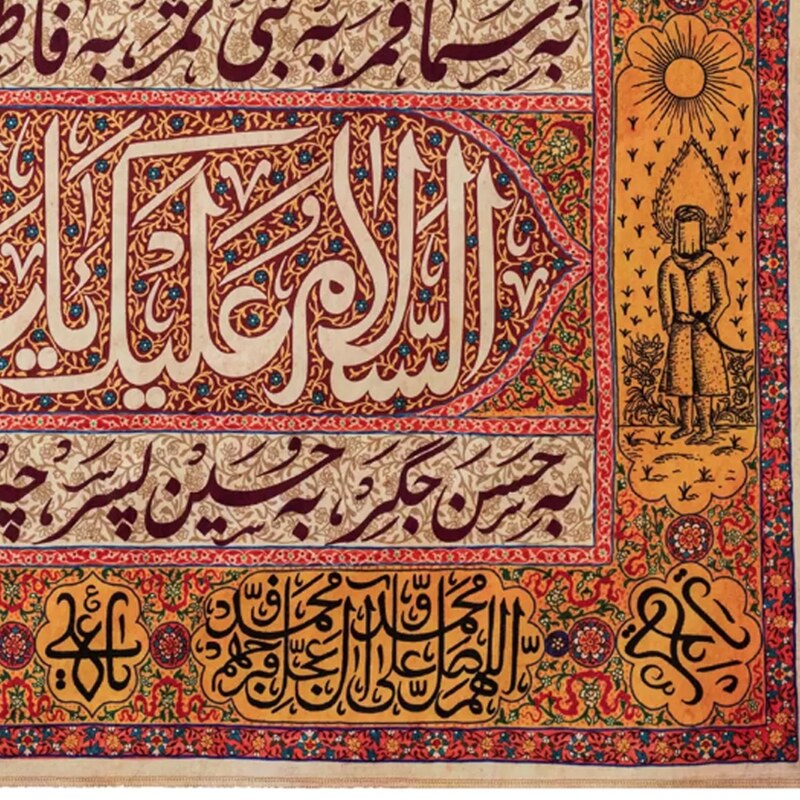 به سما قمر به نبی ثمر به
السلام علیک یا
به حسن جگر به حسین پسر
اللهم صل علی محمد و آل محمد و عجل فرجهم
یا علی